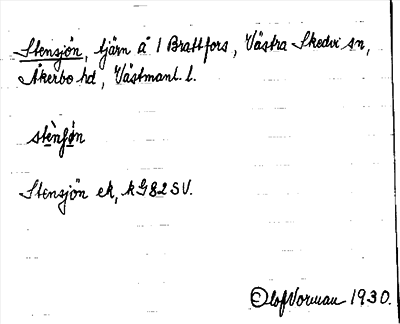 Stensjön, tjärn å 1 Brattfors, Västra Skedvi sn,
Åkerbo hd, Västmanl. l.
stènʃøn
Stensjön ek, kG82SV.
Olof Vorman 1930.